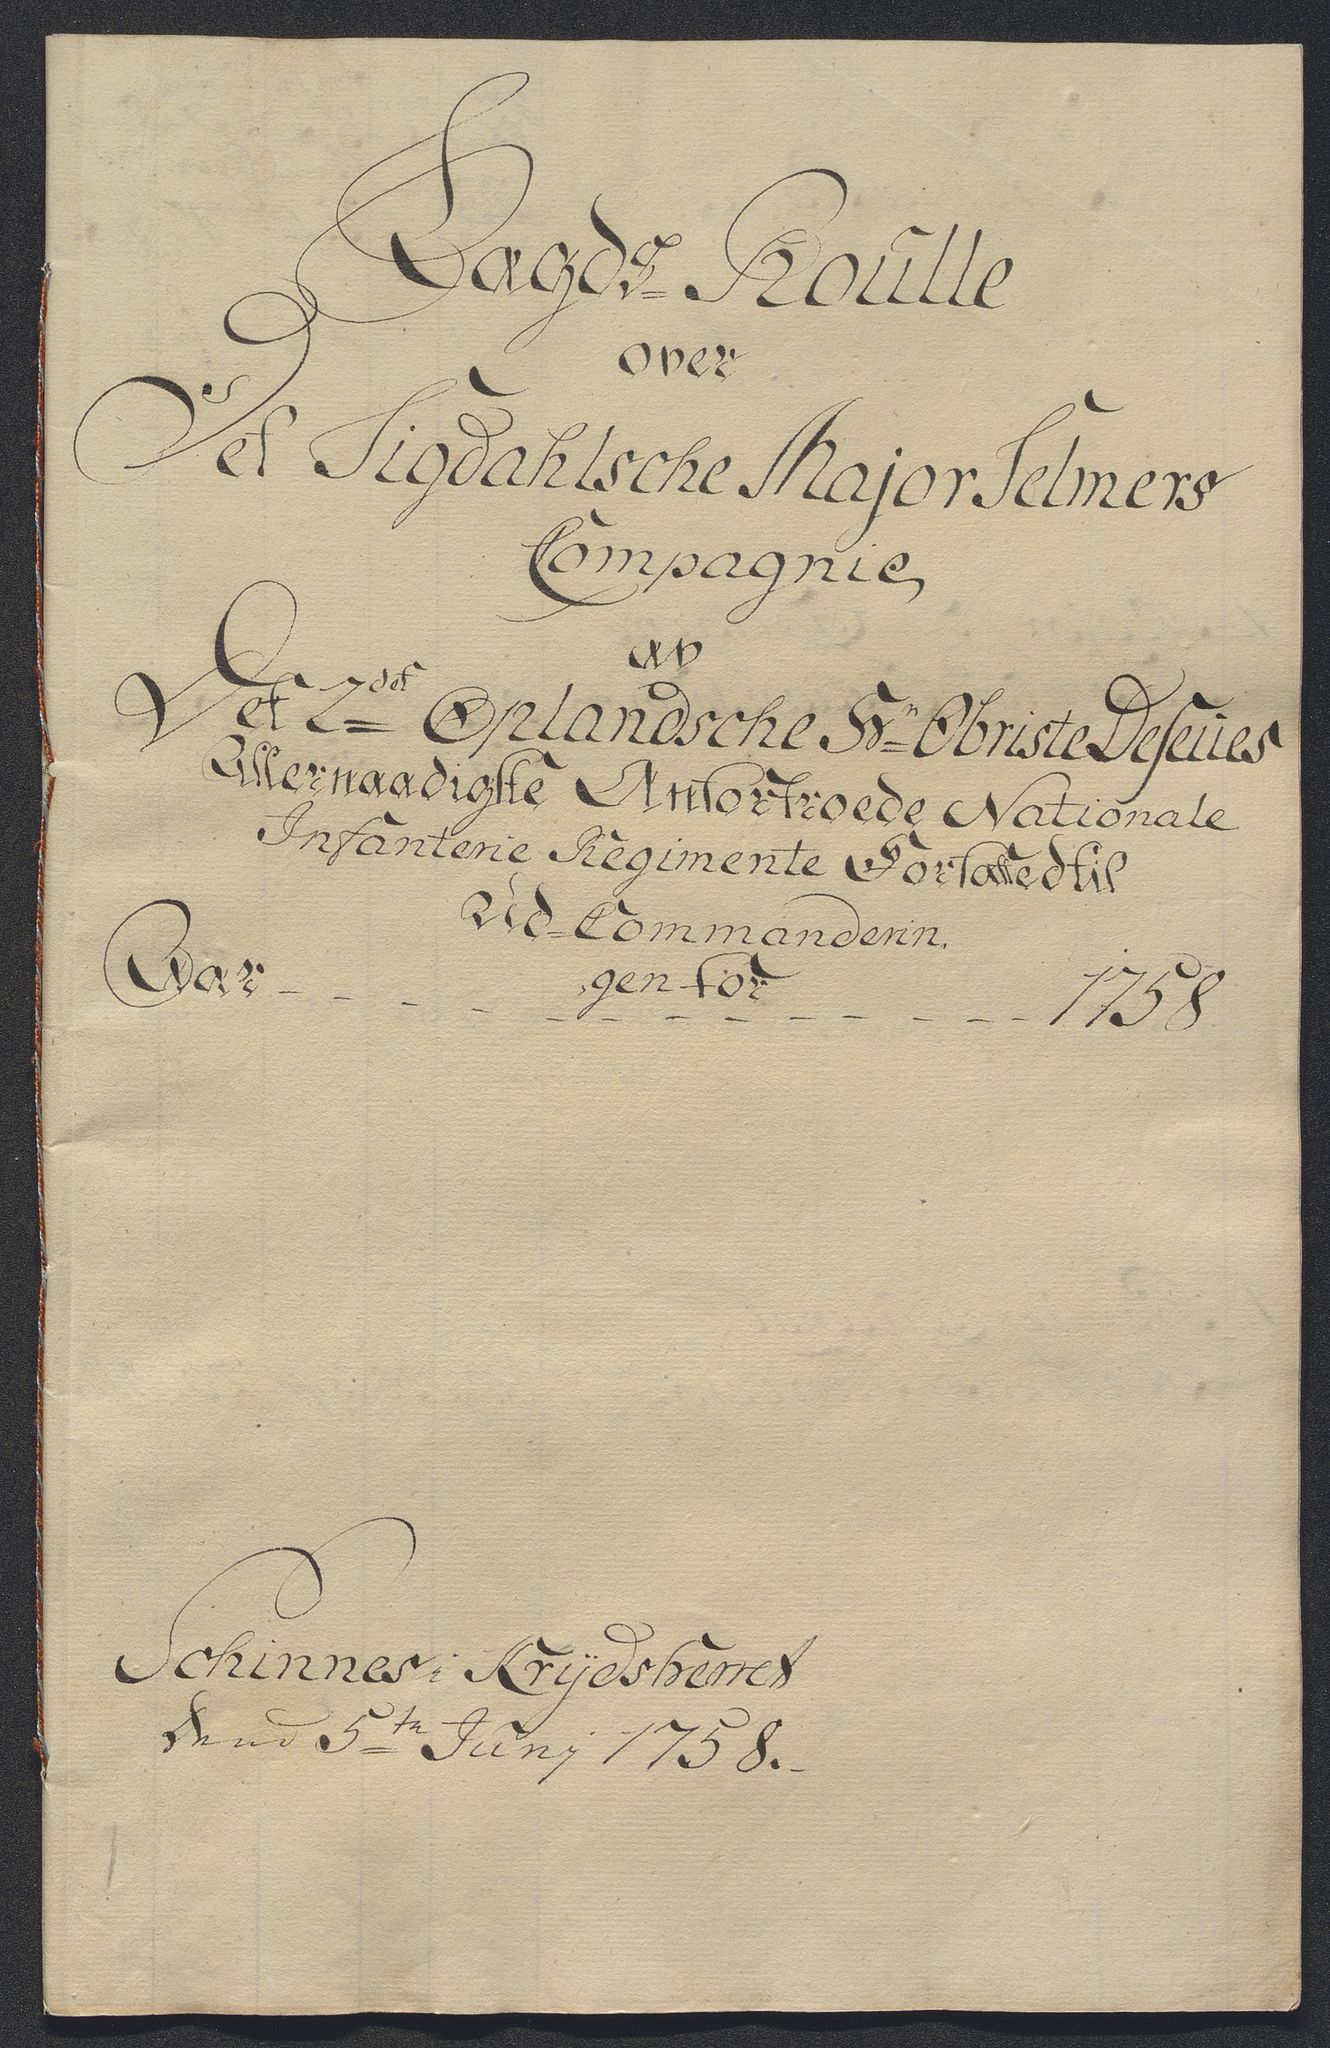 Lagds- Roulle
over
Det Sigdahlsche Major Selmers
Compagnie
av
Det 2det Oplandsche Hr. Obriste Deseües
Allernaadigste Anfortroede Nationale
Infanterie Regimente Forfattedtil
Ud-Commanderin,
gen for
Aar - - - - - - - - - - - - - - 1758
Schinnes i Krydsherret
dend 5te Juny 1758.-